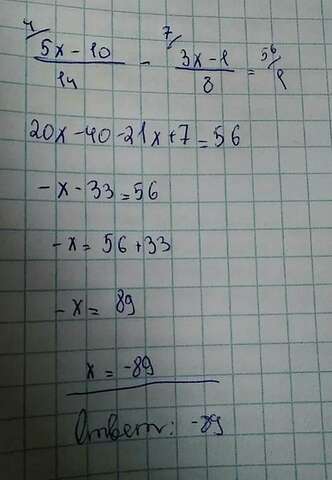 4/ 5x - 10 / 14 - 7/ 3x - 1 / 8 = 56/ 1
20x - 40 - 21x + 7 = 56
-x - 33 = 56
-x = 56 + 33
-x = 89
x = -89
Ответ: -89